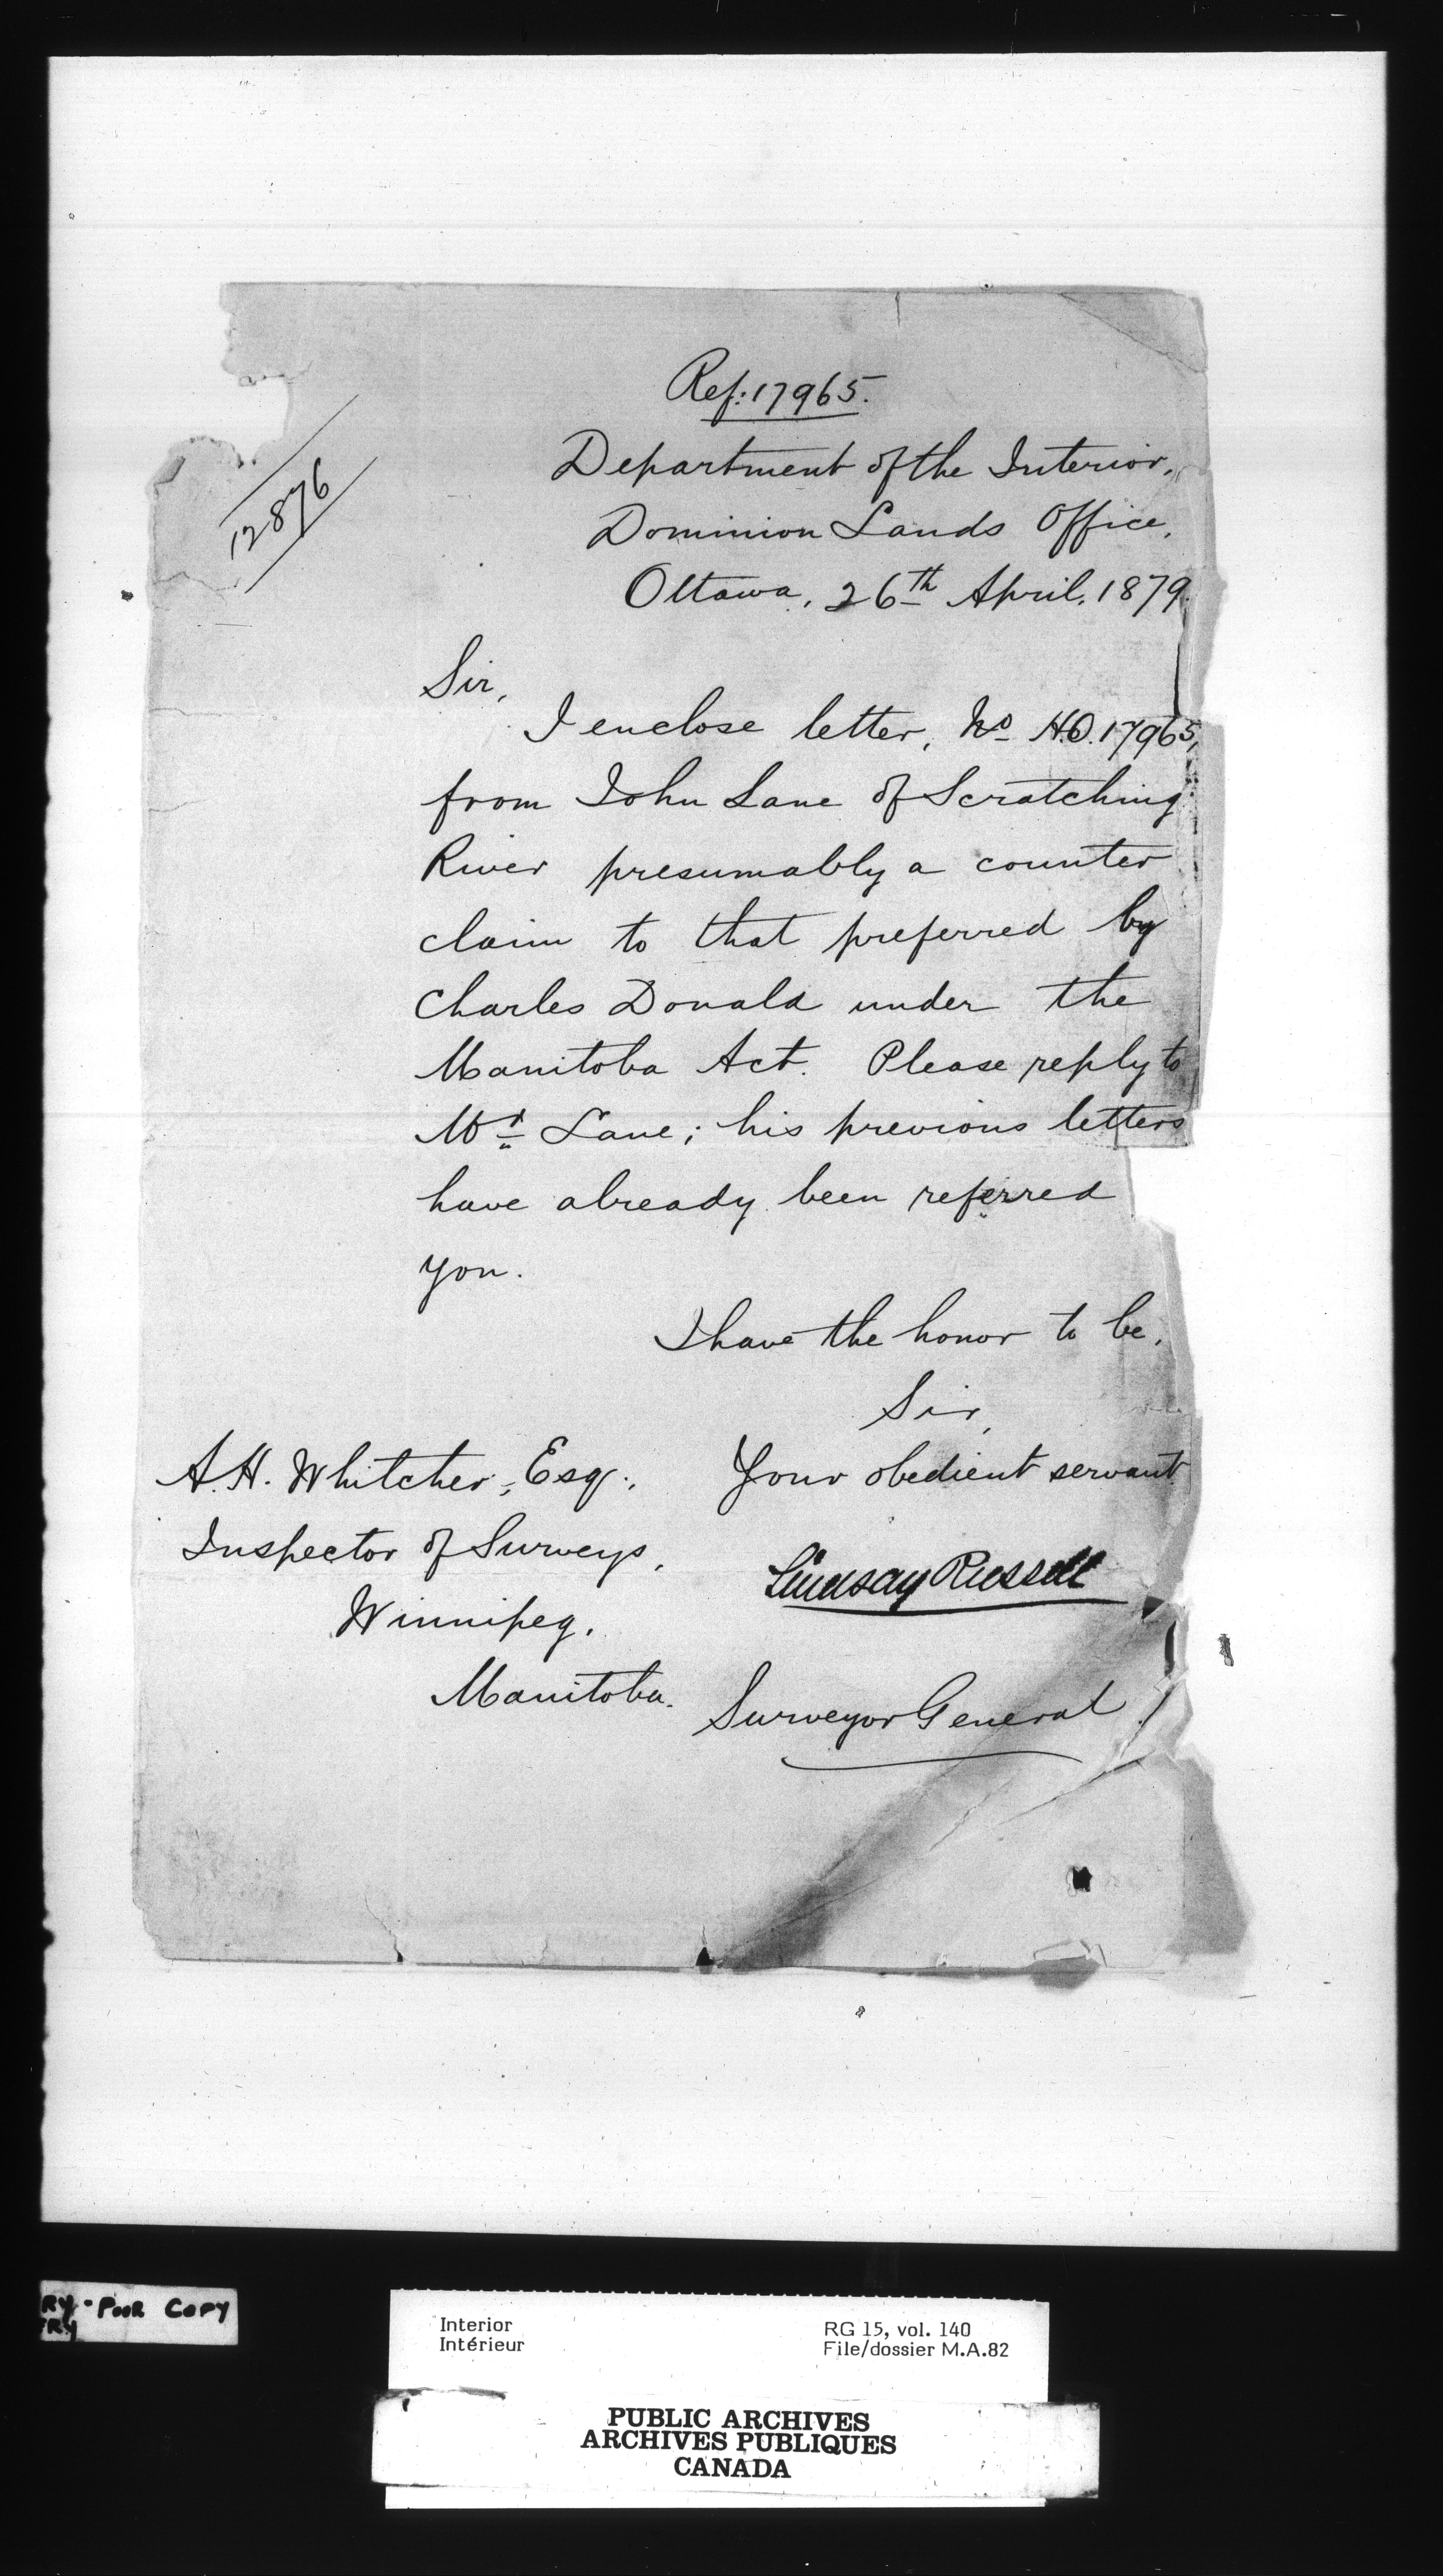 Ref: 17965.
12876
Department of the Interior,
Dominion Lands Office,
Ottawa, 26th April, 1879.
Sir,
I enclose letter, No H.O. 17965,
from John Lane of Scratching
River presumably a counter
claim to that preferred by
Charles Donald under the
Manitoba Act. Please reply to
Mr Lane; his previous letters
have already been referred
you.
I have the honor to be,
Sir,
Your obedient servant
A.H. Whitcher, Esq.,
Inspector of Surveys,
Winnipeg,
Manitoba.
Lindsay Russell
Surveyor General
RY - POOR COPY
RY
Interior
Intérieur
RG 15, vol. 140
File/dossier M.A.82
PUBLIC ARCHIVES
ARCHIVES PUBLIQUES
CANADA